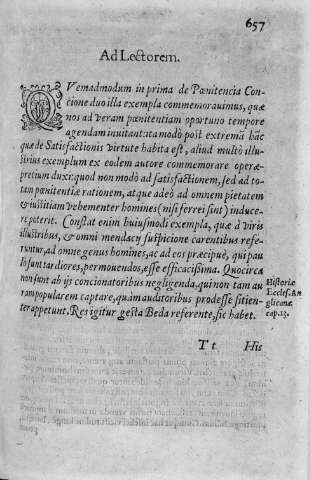 657
Ad Lectorem.
QVemadmodum in prima de Pœnitencia Con
cione duo illa exempla commemorauimus, quæ
nos ad veram pœnitentiam oportuno tempore
agendam inuitant: ita modò post extremã hãc
quæ de Satisfactionis virtute habita est, aliud multò illu
strius exemplum ex eodem autore commemorare operæ-
pretium duxi: quod non modò ad satisfactionem, sed ad to-
tam pœnitentiæ rationem, atque adeò ad omnem pietatem
& iustitiam vehementer homines (nisi ferrei sint) induce-
re poterit. Constat enim huiusmodi exempla, quæ à viris
illustribus, & omni mendacij suspicione carentibus refe-
runtur, ad omne genus homines, ac ad eos præcipuè, qui pau
lò sunt tardiores, permouendos, esse efficacissima. Quocirca
non sunt ab ijs concionatoribus negligenda, qui non tam au
ram popularem captare, quàm auditoribus prodesse sitien-
ter appetunt. Res igitur gesta Beda referente, sic habet.
Historiæ
Eccles. An
glicanæ
cap. 13.
T t His